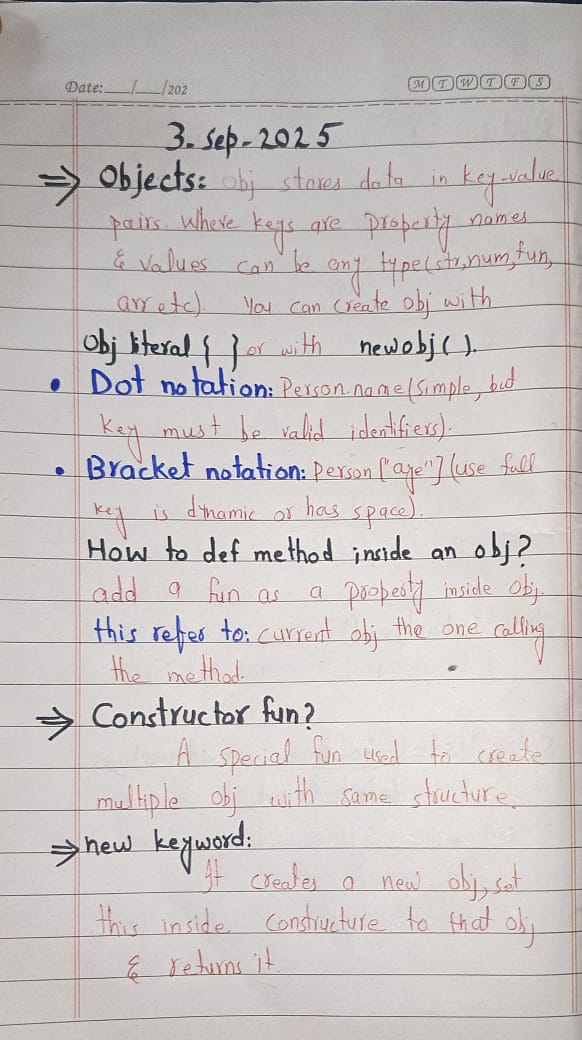 Date:__/__/202 M T W T F S
3. Sep-2025
⇒ Objects: obj stores data in key-value
pairs. Where keys are property names
& values can be any type(str,num,fun,
arr etc). You can create obj with
Obj literal { } or with new obj( ).
• Dot notation: Person.name(Simple, but
key must be valid identifiers).
• Bracket notation: Person["age"] (use full
key is dynamic or has space).
How to def method inside an obj?
add a fun as a property inside obj.
this refer to: current obj the one calling
the method.
⇒ Constructor fun?
A special fun used to create
multiple obj with same structure.
⇒ new keyword:
It creates a new obj, set
this inside constructure to that obj
& returns it.